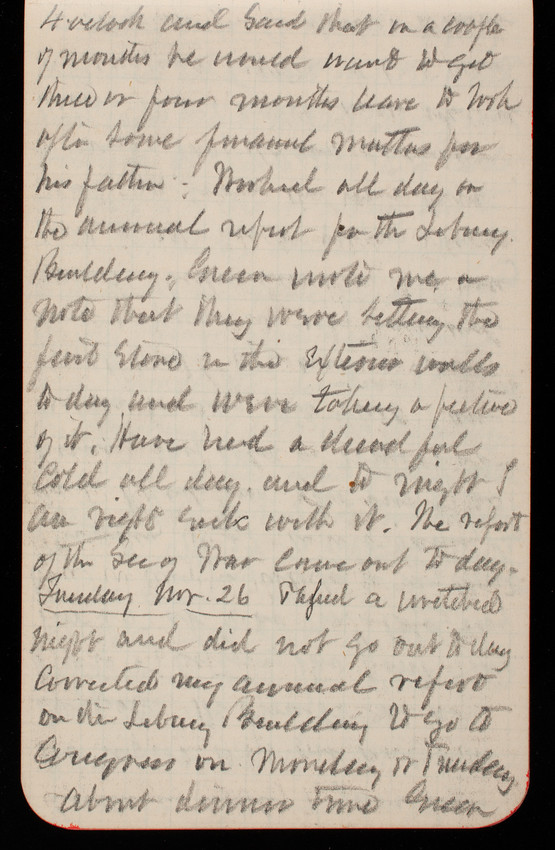 4 oclock and said that in a couple
of months he would want to get
three or four months leave to look
after some financial matters for
his father. Worked all day on
the annual report for the Library
Building. Green wrote me a
note that they were setting the
first stone in the exterior walls
to day and were taking a picture
of it. Have had a dreadful
cold all day. and to night I
am right sick with it. The report
of the Sec of War came out to day.
Tuesday Nov. 26 Passed a wretched
night and did not go out to day
Corrected my annual report
on the Library Building to go to
Congress on Monday or Tuesday.
About dinner time Green